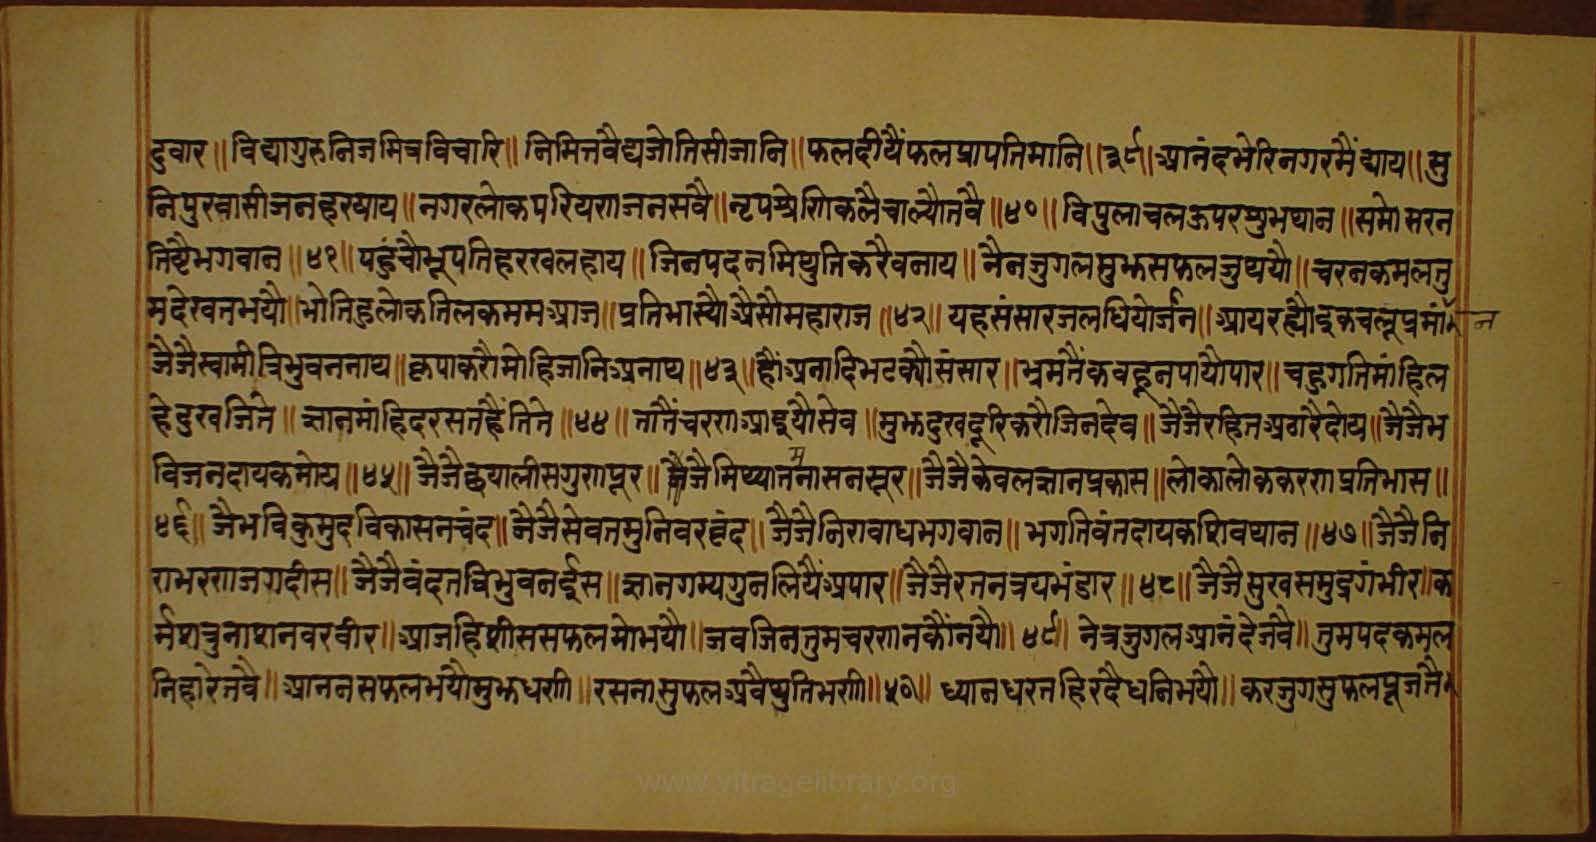 दुवार ॥ विद्यागुरुनिजमित्रविचारि ॥ निमित्तवैद्यजोतिसीजानि ॥ फलदीयैंफलप्रापतिमानि ॥ ३९ ॥ आनंदभेरिनगरमैंद्याय ॥ सु
निपुरवासीजनहरषाय ॥ नगरलोकपरियणजनसवै ॥ नृपश्रेणिकलैचाल्यौतवै ॥ ४० ॥ विपुलाचलऊपरशुभथान ॥ समोसरन
तिष्टैभगवान ॥ ४१ ॥ पहुंचौभूपतिहरखलहाय ॥ जिनपदनमिथुतिकरैवनाय ॥ नैनजुगलमुझसफलजुथयौ ॥ चरनकमलतु
मदेखतभयौ ॥ भोतिहुलोकतिलकममआज ॥ प्रतिभास्यौअैसौमहाराज ॥ ४२ ॥ यहसंसारजलधियोर्जन ॥ आयरह्यौइकचलूप्रमांन
जैजैस्वामीत्रिभुवननाथ ॥ कृपाकरौमोहिजानिअनाथ ॥ ४३ ॥ हौंअनादिभटक्यौसंसार ॥ भ्रमतैंकवहूनपायौपार ॥ चहुगतिमांहिल
हेदुखजिते ॥ ज्ञानमांहिदरसतहैंतिते ॥ ४४ ॥ तातैंचरणआइयौसेव ॥ मुझदुखदूरिकरौजिनदेव ॥ जैजैरहितअठारैदोय ॥ जैजैभ
विजनदायकमोय ॥ ४५ ॥ जैजैछयालीसगुणपूर ॥ जैजैमिथ्यातमनासनसूर ॥ जैजैकेवलज्ञानप्रकास ॥ लोकालोककरणप्रतिभास ॥
४६ ॥ जैभविकुमुदविकासनचंद ॥ जैजैसेवतमुनिवरवृंद ॥ जैजैनिरावाधभगवान ॥ भगतिवंतदायकशिवथान ॥ ४७ ॥ जैजैनि
राभरणजगदीस ॥ जैजैवंदतत्रिभुवनईस ॥ ज्ञानगम्यगुनलियैंअपार ॥ जैजैरतनत्रयभंडार ॥ ४८ ॥ जैजैसुखसमुद्रगंभीर ॥ क
र्मशत्रुनाशनवरवीर ॥ आजहिशीससफलमोभयौ ॥ जवजिनतुमचरणनकौंनयौ ॥ ४९ ॥ नेत्रजुगलआनंदेजवै ॥ तुमपदकमल
निहारेतवै ॥ आननसफलभयौमुझधणी ॥ रसनासुफलअवैथुतिभणी ॥ ५० ॥ ध्यानधरतहिरदैधनिभयौ ॥ करजुगसुफलपूजतै
www.vitragelibrary.org